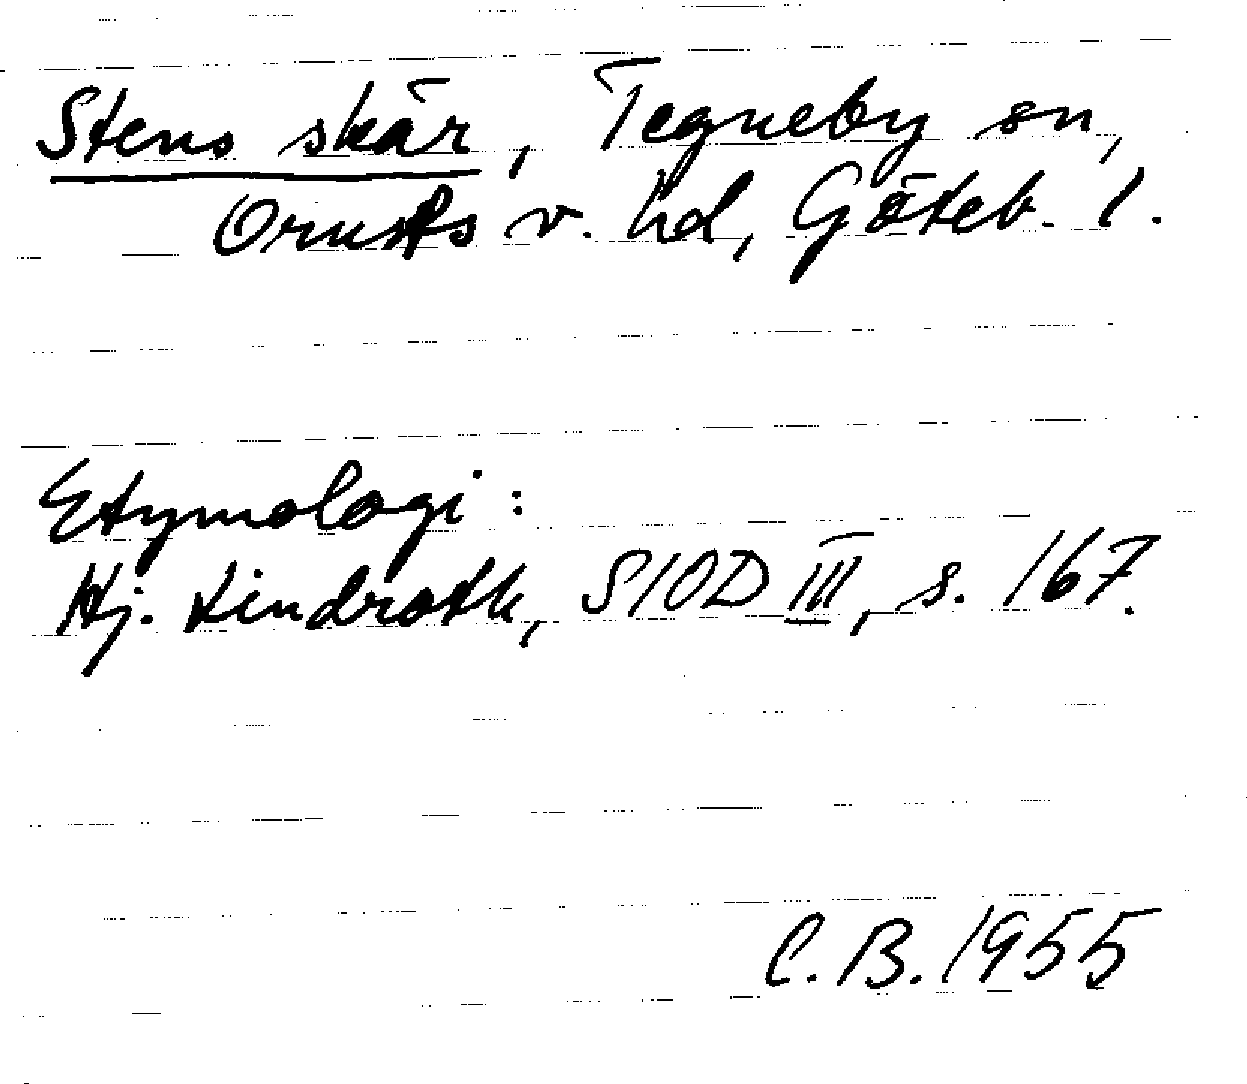 Stens skär, Tegneby sn,
Orusts v. hd, Göteb. l.
Etymologi:
Hj. Lindroth, SIOD III, s. 167.
C.B. 1955